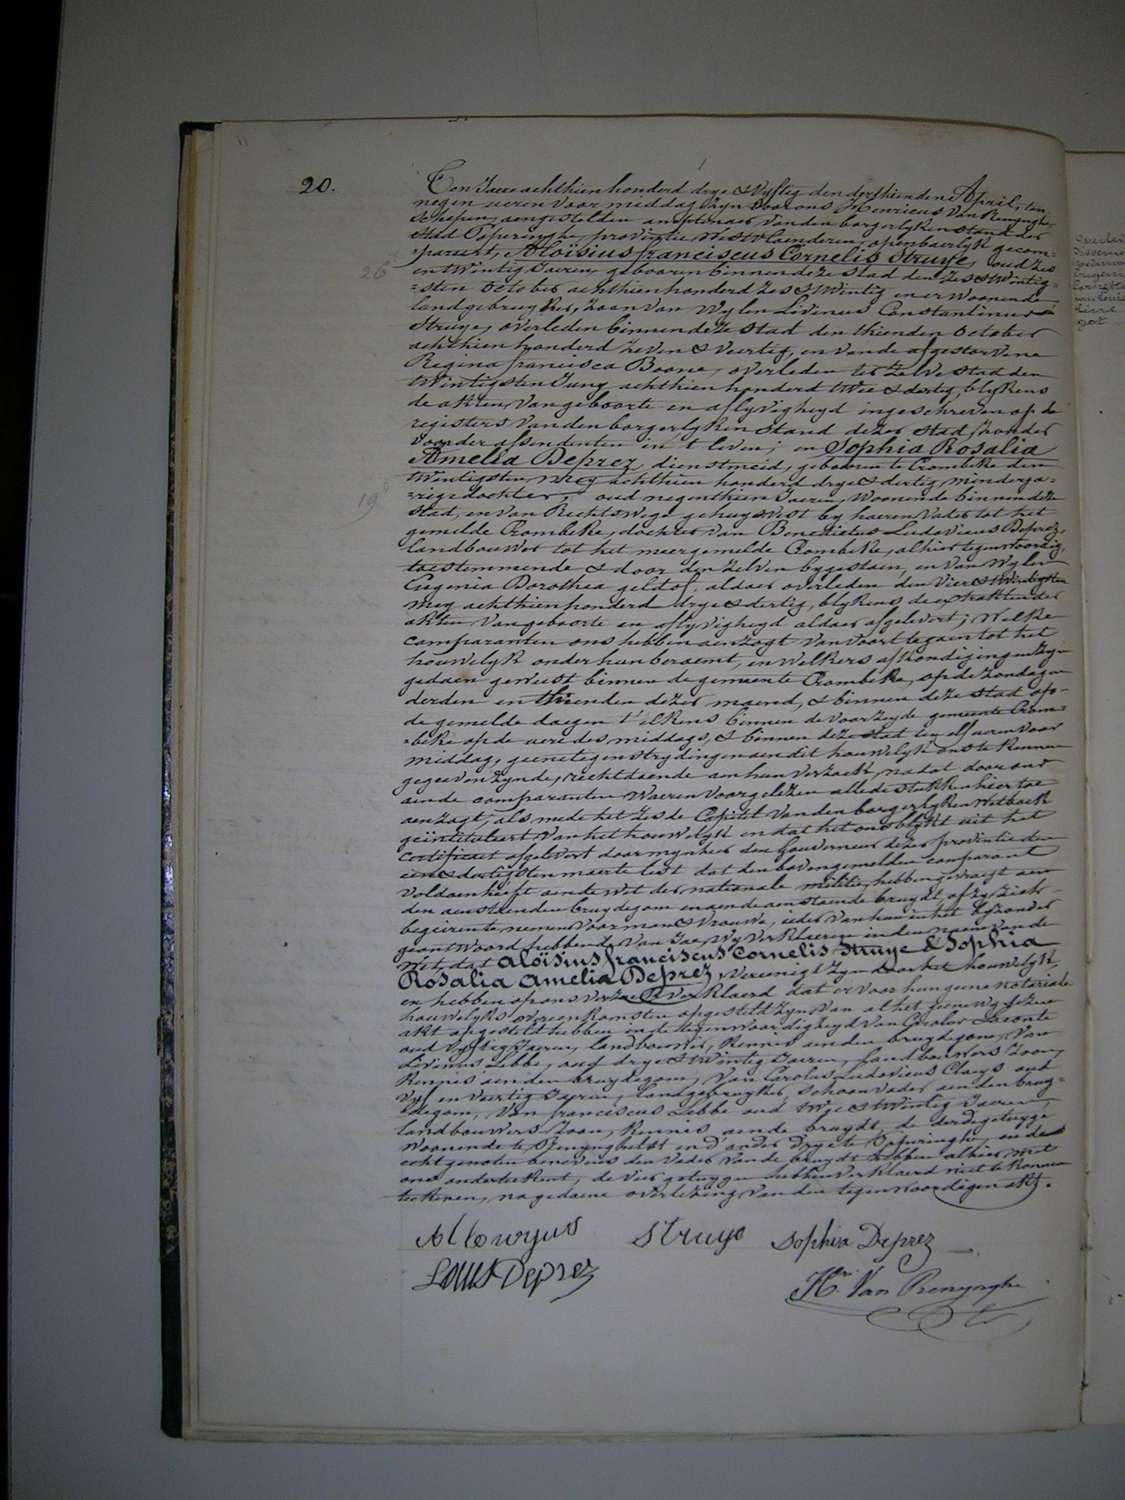 20.
Ten Jaere achthien honderd drye & vyftig den derthienden April, ten
negen ueren voor middag zyn voor ons Henricus Van Renynghe,
schepen, aengestelden amptenaer van den borgerlyken stand der
stad Poperinghe, provintie Westvlaenderen, openbaerlyk gecom-
-pareert, Aloïsius franciscus Cornelis Struye, oud zes
26
en twintig Jaeren, gebooren binnen deze stad den zes & twintig-
-sten october achthien honderd zes & twintig en er woonende
landgebruyker, zoon van wylen Livinus Constantinus
Struye, overleden binnen deze stad den thienden october
achthien honderd zeven & veertig, en van de afgestorvene
Regina francisca Boone, overleden ter zelve stad den
twintigsten Juny achthien honderd twee & dertig, blykens
de akten van geboorte en aflyvigheyd ingeschreven op de
registers van den borgerlyken stand dezer stad, zonder
voorder assendenten in 't leven; en Sophia Rosalia
Amelia Deprez, dienstmeid, gebooren te Crombeke den
twintigsten mey achthien honderd drye & dertig, minderja-
19
-rige dochter, oud negenthien Jaeren, woonende binnen deze
stad, en van Rechtswege gehuysvest by haeren vader tot het
gemelde Crombeke, dochter van Benedictus Ludovicus Deprez,
landbouwer tot het meergemelde Crombeke, alhier tegenwoordig,
toestemmende & door den zelven bygestaen, en van wylen
Eugenia Dorothea geldof, aldaer overleden den vier & twintigsten
mey achthien honderd drye & dertig, blykens de extrakten der
akten van geboorte en aflyvigheyd aldaer afgelevert; Welke
comparanten ons hebben aenzogt van voort te gaen tot het
houwelyk onder hun beraemt, en welkers afkondigingen zyn
gedaen geweest binnen de gemeente Crombeke, op de zondagen
derden en thienden dezer maend, & binnen deze stad op
de gemelde dagen t'elkens binnen de voorzeyde gemeente Crom-
-beke op de uere des middags, & binnen deze stad ten elf ueren voor
middag, geene tegenstrydingen aen dit houwelyk ons te kennen
gegeven zynde, rechtdoende aen hun verzoek, na dat door ons
aende comparanten waeren voorgelezen alle de stukken hier toe
aenzogt, als mede het zesde Capittel van den borgerlyken wetboek
geïntituleert van het houwelyk en dat het ons blykt uit het
certificaet afgelevert door mynheer den Gouverneur dezer provintie den
een & dertigsten maerte lest dat den bovengemelden comparant
voldaen heeft aende wet der nationale militie, hebben gevraegt aen
den aenstaenden bruydegom en aende aenstaende bruydt, of zy zich
begeerden te nemen voor man & vrouwe, ieder van hun in het byzonder
geantwoord hebbende van Jae, wy verklaeren in den naem van de
wet, dat Aloïsius franciscus Cornelis Struye & Sophia
Rosalia Amelia Deprez, vereenigt zyn door het houwelyk,
en hebben op ons verzoek verklaerd dat er voor hun geene notariale
houwelyks overeenkomsten opgesteld zyn, van al het geene wy dezen
akt opgesteld hebben in de tegenwoordigheyd van Carolus Leconte
oud vyftig Jaeren, landbouwer, kennis aen den bruydegom, van
Livinus Lebbe, oud drye & twintig Jaeren, landbouwers zoon,
kennis aen den bruydegom, van Carolus Ludovicus Claeys oud
vyf en veertig Jaeren, landgebruyker, schoonvader aen den bruy-
-degom, van franciscus Lebbe oud twee & twintig Jaeren,
landbouwers zoon, kennis aende bruydt, de derde getuyge
woonende te Renynghelst en d'ander drye te Poperinghe, en de
echtgenoten benevens den vader van de bruydt hebben alhier met
ons onderteekent, de vier getuygen hebben verklaerd niet te konnen
teekenen, na gedaene overlezing van den tegenwoordigen akt.
Allowyus Struye Sophia Deprez
Louis Deprez
Hri Van Renynghe